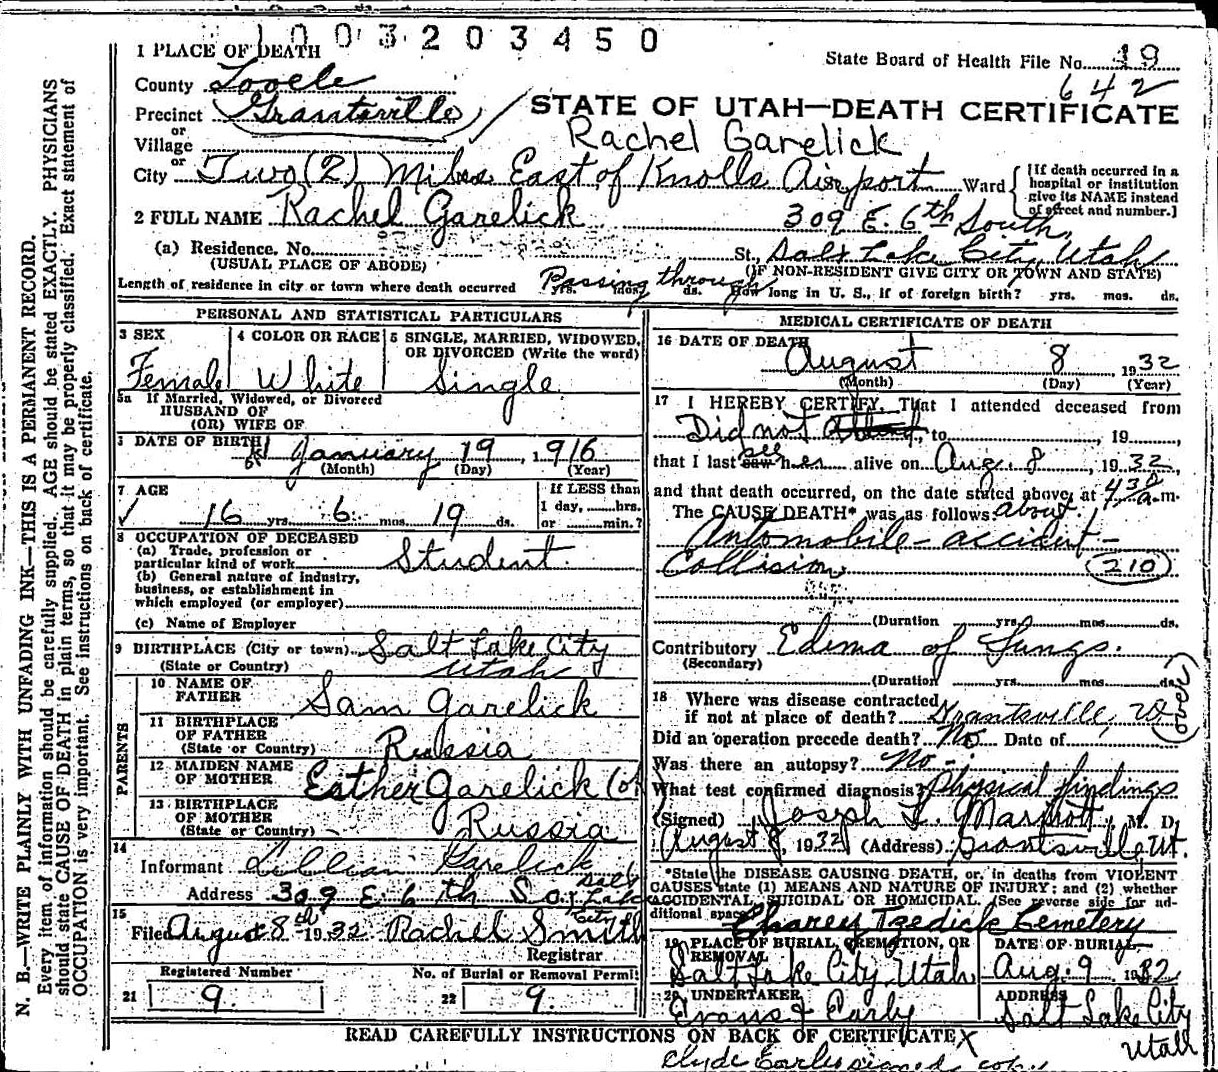 1003203450
1 PLACE OF DEATH
State Board of Health File No. 19
County Tooele
642
Precinct Grantsville
STATE OF UTAH—DEATH CERTIFICATE
or
Rachel Garelick
Village
or
City Two (2) Miles East of Knolls Airport Ward [If death occurred in a hospital or institution give its NAME instead of street and number.]
2 FULL NAME Rachel Garelick
309 E. 6th South,
(a) Residence. No. St., Salt Lake City, Utah
(USUAL PLACE OF ABODE) (IF NON-RESIDENT GIVE CITY OR TOWN AND STATE)
Length of residence in city or town where death occurred Passing through yrs. mos. ds. How long in U. S., if of foreign birth? yrs. mos. ds.
PERSONAL AND STATISTICAL PARTICULARS
3 SEX
Female
4 COLOR OR RACE
White
5 SINGLE, MARRIED, WIDOWED, OR DIVORCED (Write the word)
Single
5a If Married, Widowed, or Divorced
HUSBAND OF
(OR) WIFE OF
DATE OF BIRTH
January 19, 1916
(Month) (Day) (Year)
7 AGE
16 yrs. 6 mos. 19 ds.
If LESS than
1 day, hrs.
or min.?
8 OCCUPATION OF DECEASED
(a) Trade, profession or
particular kind of work Student
(b) General nature of industry,
business, or establishment in
which employed (or employer)
(c) Name of Employer
9 BIRTHPLACE (City or town) Salt Lake City
(State or Country) Utah
PARENTS
10 NAME OF
FATHER Sam Garelick
11 BIRTHPLACE
OF FATHER
(State or Country) Russia
12 MAIDEN NAME
OF MOTHER Esther Garelick
13 BIRTHPLACE
OF MOTHER
(State or Country) Russia
14
Informant Lillian Garelick
Address 309 E. 6th So. Salt Lake City
15
Filed August 8th 1932 Rachel Smith
Registrar
Registered Number
21 9.
No. of Burial or Removal Permit
22 9.
MEDICAL CERTIFICATE OF DEATH
16 DATE OF DEATH
August 8, 1932
(Month) (Day) (Year)
17 I HEREBY CERTIFY, That I attended deceased from
Did not attend, to , 19 ,
that I last saw see her alive on Aug. 8, 1932,
and that death occurred, on the date stated above, at 4 30 a.m.
The CAUSE DEATH* was as follows: about
Automobile - accident -
Collision. (210)
(Duration yrs. mos. ds.
Contributory Edima of Lungs.
(Secondary)
(Duration yrs. mos. ds.
(over)
18 Where was disease contracted
if not at place of death? Grantsville, U
Did an operation precede death? No Date of
Was there an autopsy? No -
What test confirmed diagnosis? Physical findings
(Signed) Joseph L. Marriott, M. D.
August 8, 1932 (Address) Grantsville, Ut.
*State the DISEASE CAUSING DEATH, or, in deaths from VIOLENT
CAUSES state (1) MEANS AND NATURE OF INJURY; and (2) whether
ACCIDENTAL, SUICIDAL OR HOMICIDAL. (See reverse side for additional space.)
Charey Tzedick Cemetery
19 PLACE OF BURIAL, CREMATION, OR
REMOVAL
Salt Lake City, Utah
DATE OF BURIAL
Aug. 9 1932
20 UNDERTAKER
Evans & Early
ADDRESS
Salt Lake City
Utah
READ CAREFULLY INSTRUCTIONS ON BACK OF CERTIFICATE X
Clyde signed copy
N. B.—WRITE PLAINLY WITH UNFADING INK—THIS IS A PERMANENT RECORD.
Every item of information should be carefully supplied. AGE should be stated EXACTLY. PHYSICIANS
should state CAUSE OF DEATH in plain terms, so that it may be properly classified. Exact statement of
OCCUPATION is very important. See instructions on back of certificate.